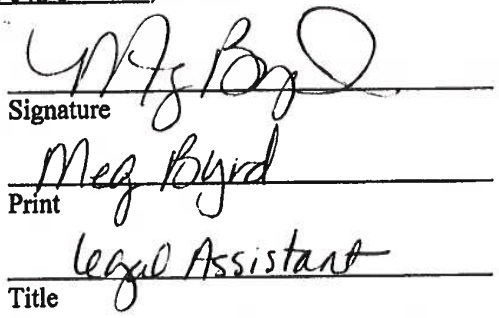 Meg Byrd
Signature
Meg Byrd
Print
Legal Assistant
Title